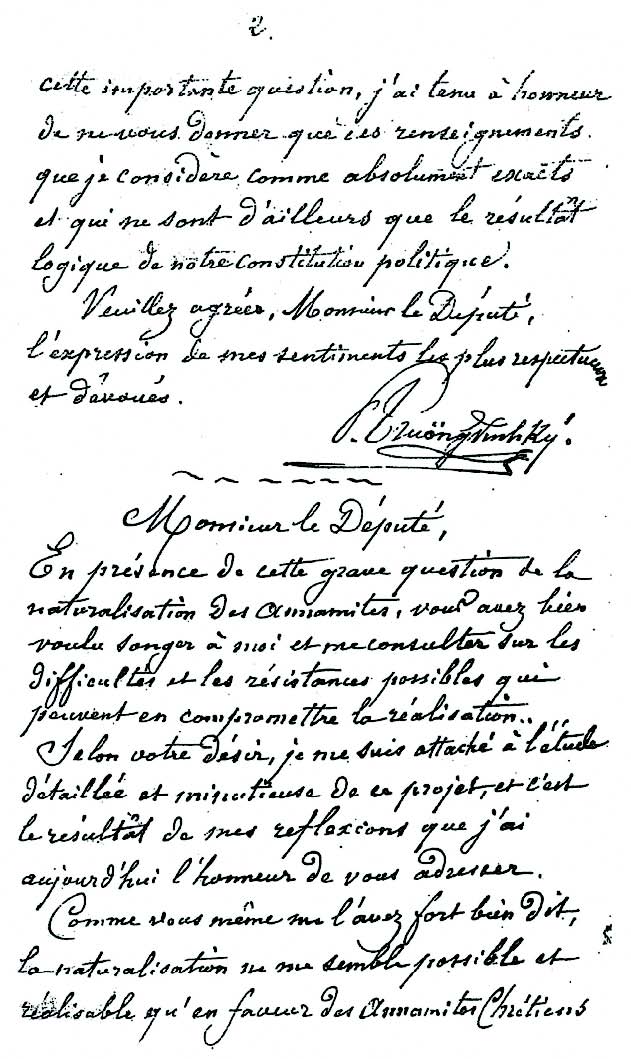 2.
cette importante question, j'ai tenu à honneur
de ne vous donner que des renseignements
que je considère comme absolument exacts
et qui ne sont d'ailleurs que le résultat
logique de notre constitution politique.
Veuillez agréer, Monsieur le Député,
l'expression de mes sentiments les plus respectueux
et dévoués.
P. Trương Vĩnh Ký.
Monsieur le Député,
En présence de cette grave question de la
naturalisation des Annamites, vous avez bien
voulu songer à moi et me consulter sur les
difficultés et les résistances possibles qui
peuvent en compromettre la réalisation..
Selon votre désir, je me suis attaché à l'étude
détaillée et minutieuse de ce projet, et c'est
le résultat de mes reflexions que j'ai
aujourd'hui l'honneur de vous adresser.
Comme vous même me l'avez fort bien dit,
la naturalisation ne me semble possible et
réalisable qu'en faveur des Annamites Chrétiens